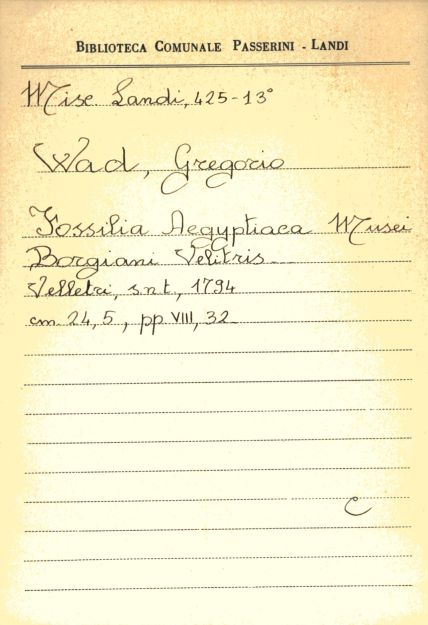 BIBLIOTECA COMUNALE PASSERINI - LANDI
Misc. Landi, 425-13°
Wad, Gregorio
Fossilia Aegyptiaca Musei
Borgiani Velitris
Velletri, s.n.t., 1794
cm. 24,5, pp. VIII, 32
C